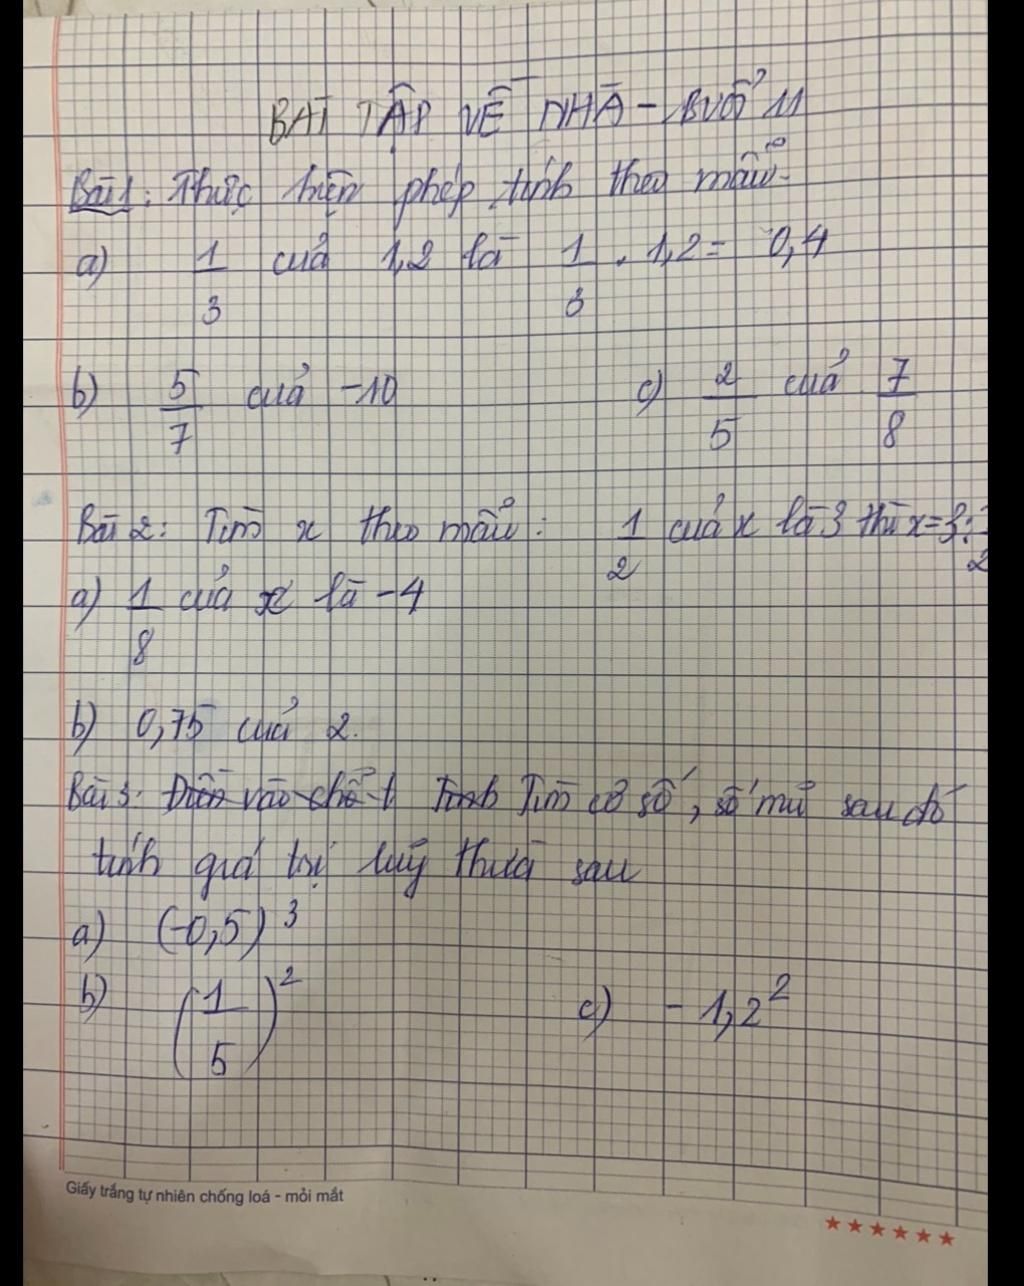 BÀI TẬP VỀ NHÀ - BUỔI 11
Bài 1: Thực hiện phép tính theo mẫu.
a) 1/3 của 1,2 là 1/3 . 1,2 = 0,4
b) 5/7 của -10 c) 2/5 của 7/8
Bài 2: Tìm x theo mẫu: 1/2 của x là 3 thì x = 3 :
a) 1/8 của x là -4
b) 0,75 của 2.
Bài 3. Điền vào chỗ t Tính Tìm cơ số, số mũ sau đó
tính giá trị luỹ thừa sau
a) (-0,5)³
b) (1/5)² c) - 1,2²
Giấy trắng tự nhiên chống loá - mỏi mắt